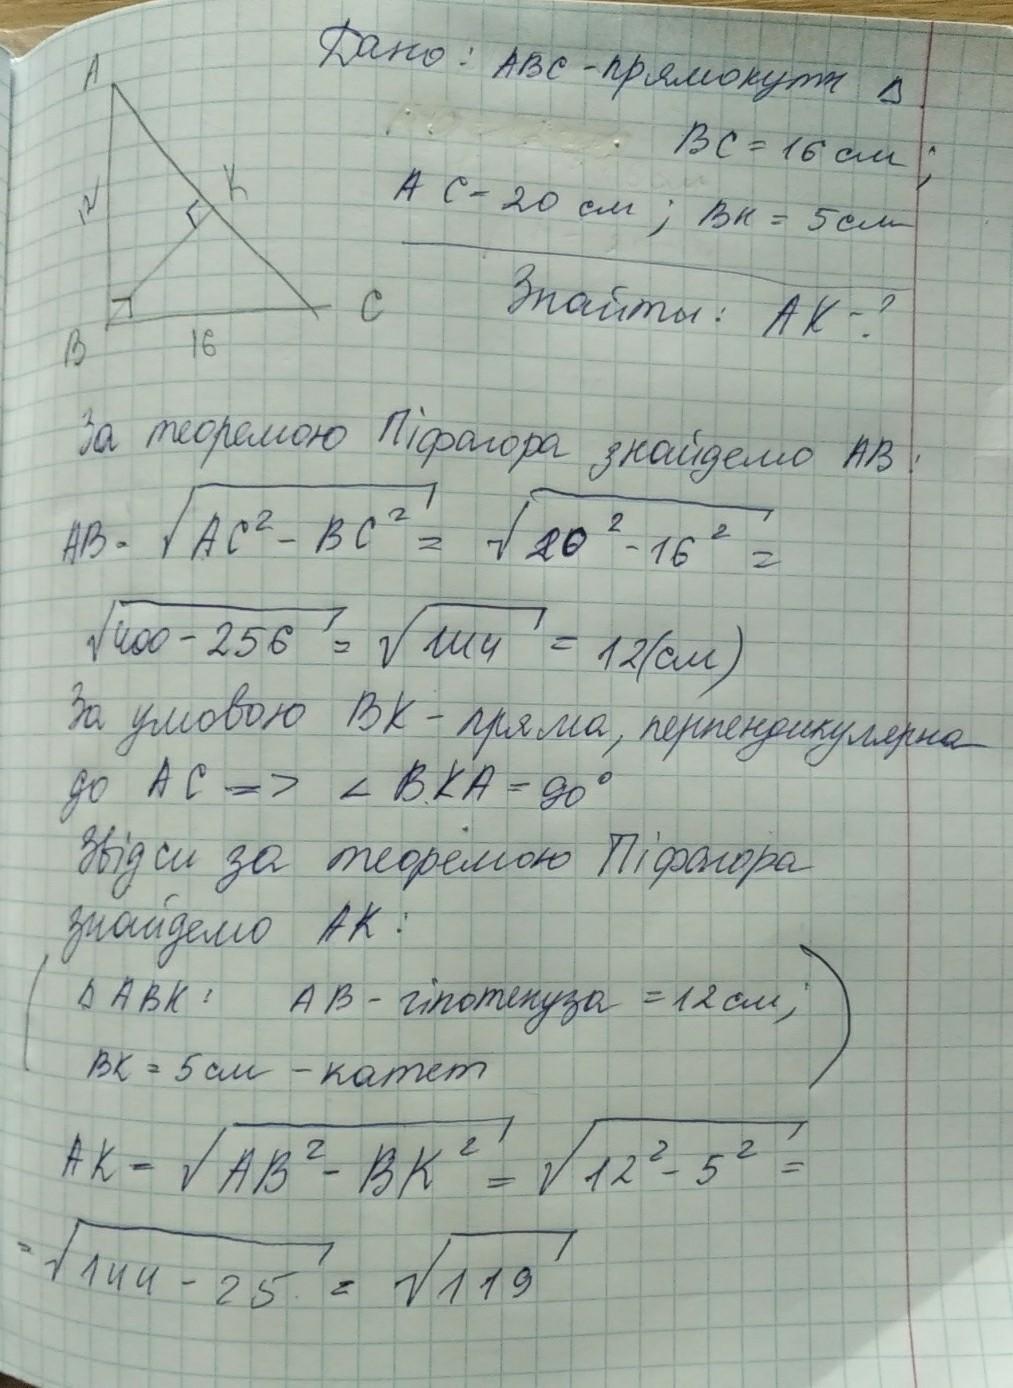 Дано: ABC - прямокутн Δ
BC = 16 см;
AC = 20 см; BK = 5 см
Знайты: AK - ?
A
K
12
B
16
C
За теоремою Піфагора знайдемо AB:
AB = √AC² - BC² = √20² - 16² =
√400 - 256 = √144 = 12(см)
За умовою BK - пряма, перпендикулярна
до AC => ∠BKA = 90°
Звідси за теоремою Піфагора
знайдемо AK:
Δ ABK: AB - гіпотенуза = 12 см;
BK = 5 см - катет
AK = √AB² - BK² = √12² - 5² =
= √144 - 25 = √119